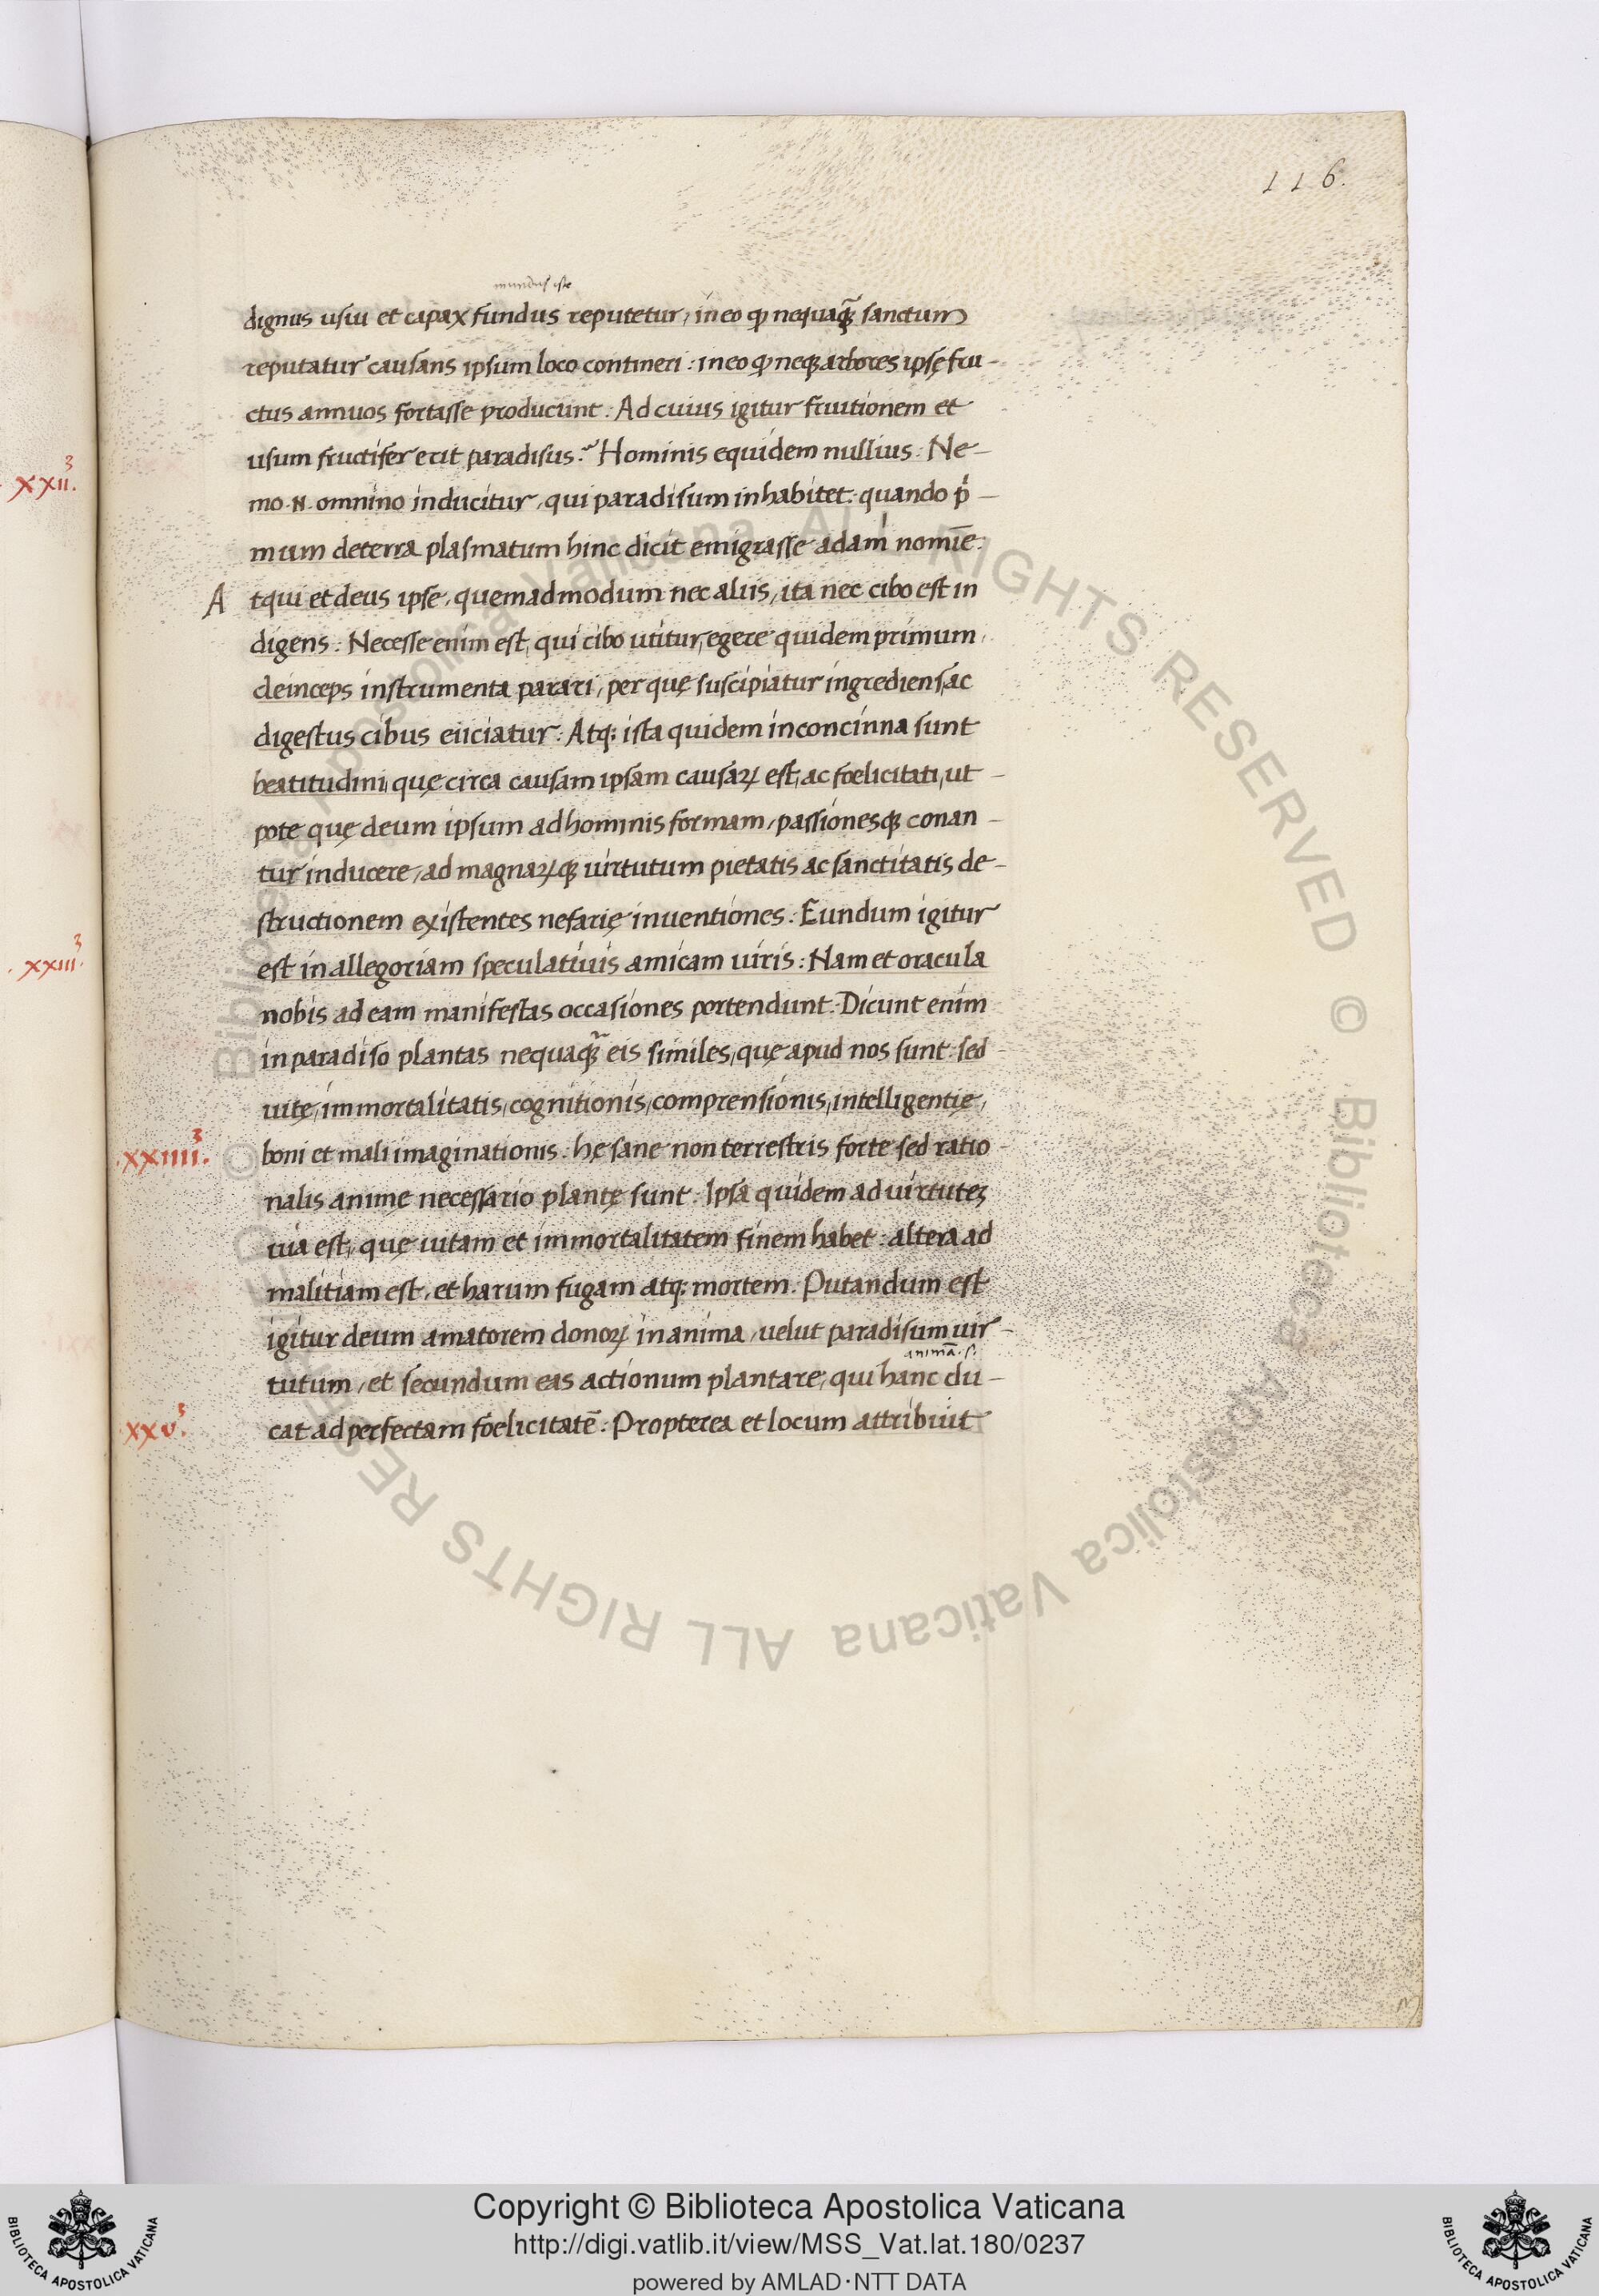 116.
mundus iste
dignus usui et capax fundus reputetur, in eo ꝙ nequaq̃ sanctum
reputatur causans ipsum loco contineri: in eo ꝙ neqꝫ arbores ipsę fru-
ctus annuos fortasse producunt: Ad cuius igitur fruitionem et
usum fructifer erit paradisus? Hominis equidem nullius: Ne-
XXII.
mo .N. omnino inducitur, qui paradisum inhabitet: quando p̍-
mum de terra plasmatum hinc dicit emigrasse adam nomīe:
Atqui et deus ipse, quemadmodum nec aliis, ita nec cibo est in
digens: Necesse enim est, qui cibo utitur, egere quidem primum,
deinceps instrumenta parari, per quę suscipiatur ingrediens, ac
digestus cibus eiiciatur: Atq; ista quidem inconcinna sunt
beatitudini, quę circa causam ipsam causaꝝ est, ac foelicitati, ut-
pote quę deum ipsum ad hominis formam, passionesqꝫ conan-
tur inducere, ad magnaꝝqꝫ uirtutum pietatis ac sanctitatis de-
structionem existentes nefarię inuentiones: Eundum igitur
XXIII.
est in allegoriam speculatiuis amicam uiris: Nam et oracula
nobis ad eam manifestas occasiones portendunt: Dicunt enim
in paradiso plantas nequaq̃ eis similes, quę apud nos sunt: sed
uitę, immortalitatis, cognitionis, comprensionis, intelligentię,
XXIIII.
boni et mali imaginationis: hę sane non terrestris forte sed ratio-
nalis animę necessario plantę sunt: Ipsa quidem ad uirtuteꝫ
uia est, quę uitam et immortalitatem finem habet: altera ad
malitiam est, et harum fugam atq; mortem. Putandum est
igitur deum amatorem donoꝝ in anima, uelut paradisum uir-
animā .s.
tutum, et secundum eas actionum plantare, qui hanc du-
XXV.
cat ad perfectam foelicitatē: Propterea et locum attribuit
Copyright © Biblioteca Apostolica Vaticana
http://digi.vatlib.it/view/MSS_Vat.lat.180/0237
powered by AMLAD·NTT DATA
BIBLIOTECA APOSTOLICA VATICANA
BIBLIOTECA APOSTOLICA VATICANA
Biblioteca Apostolica Vaticana ALL RIGHTS RESERVED © Biblioteca Apostolica Vaticana ALL RIGHTS RESERVED ©